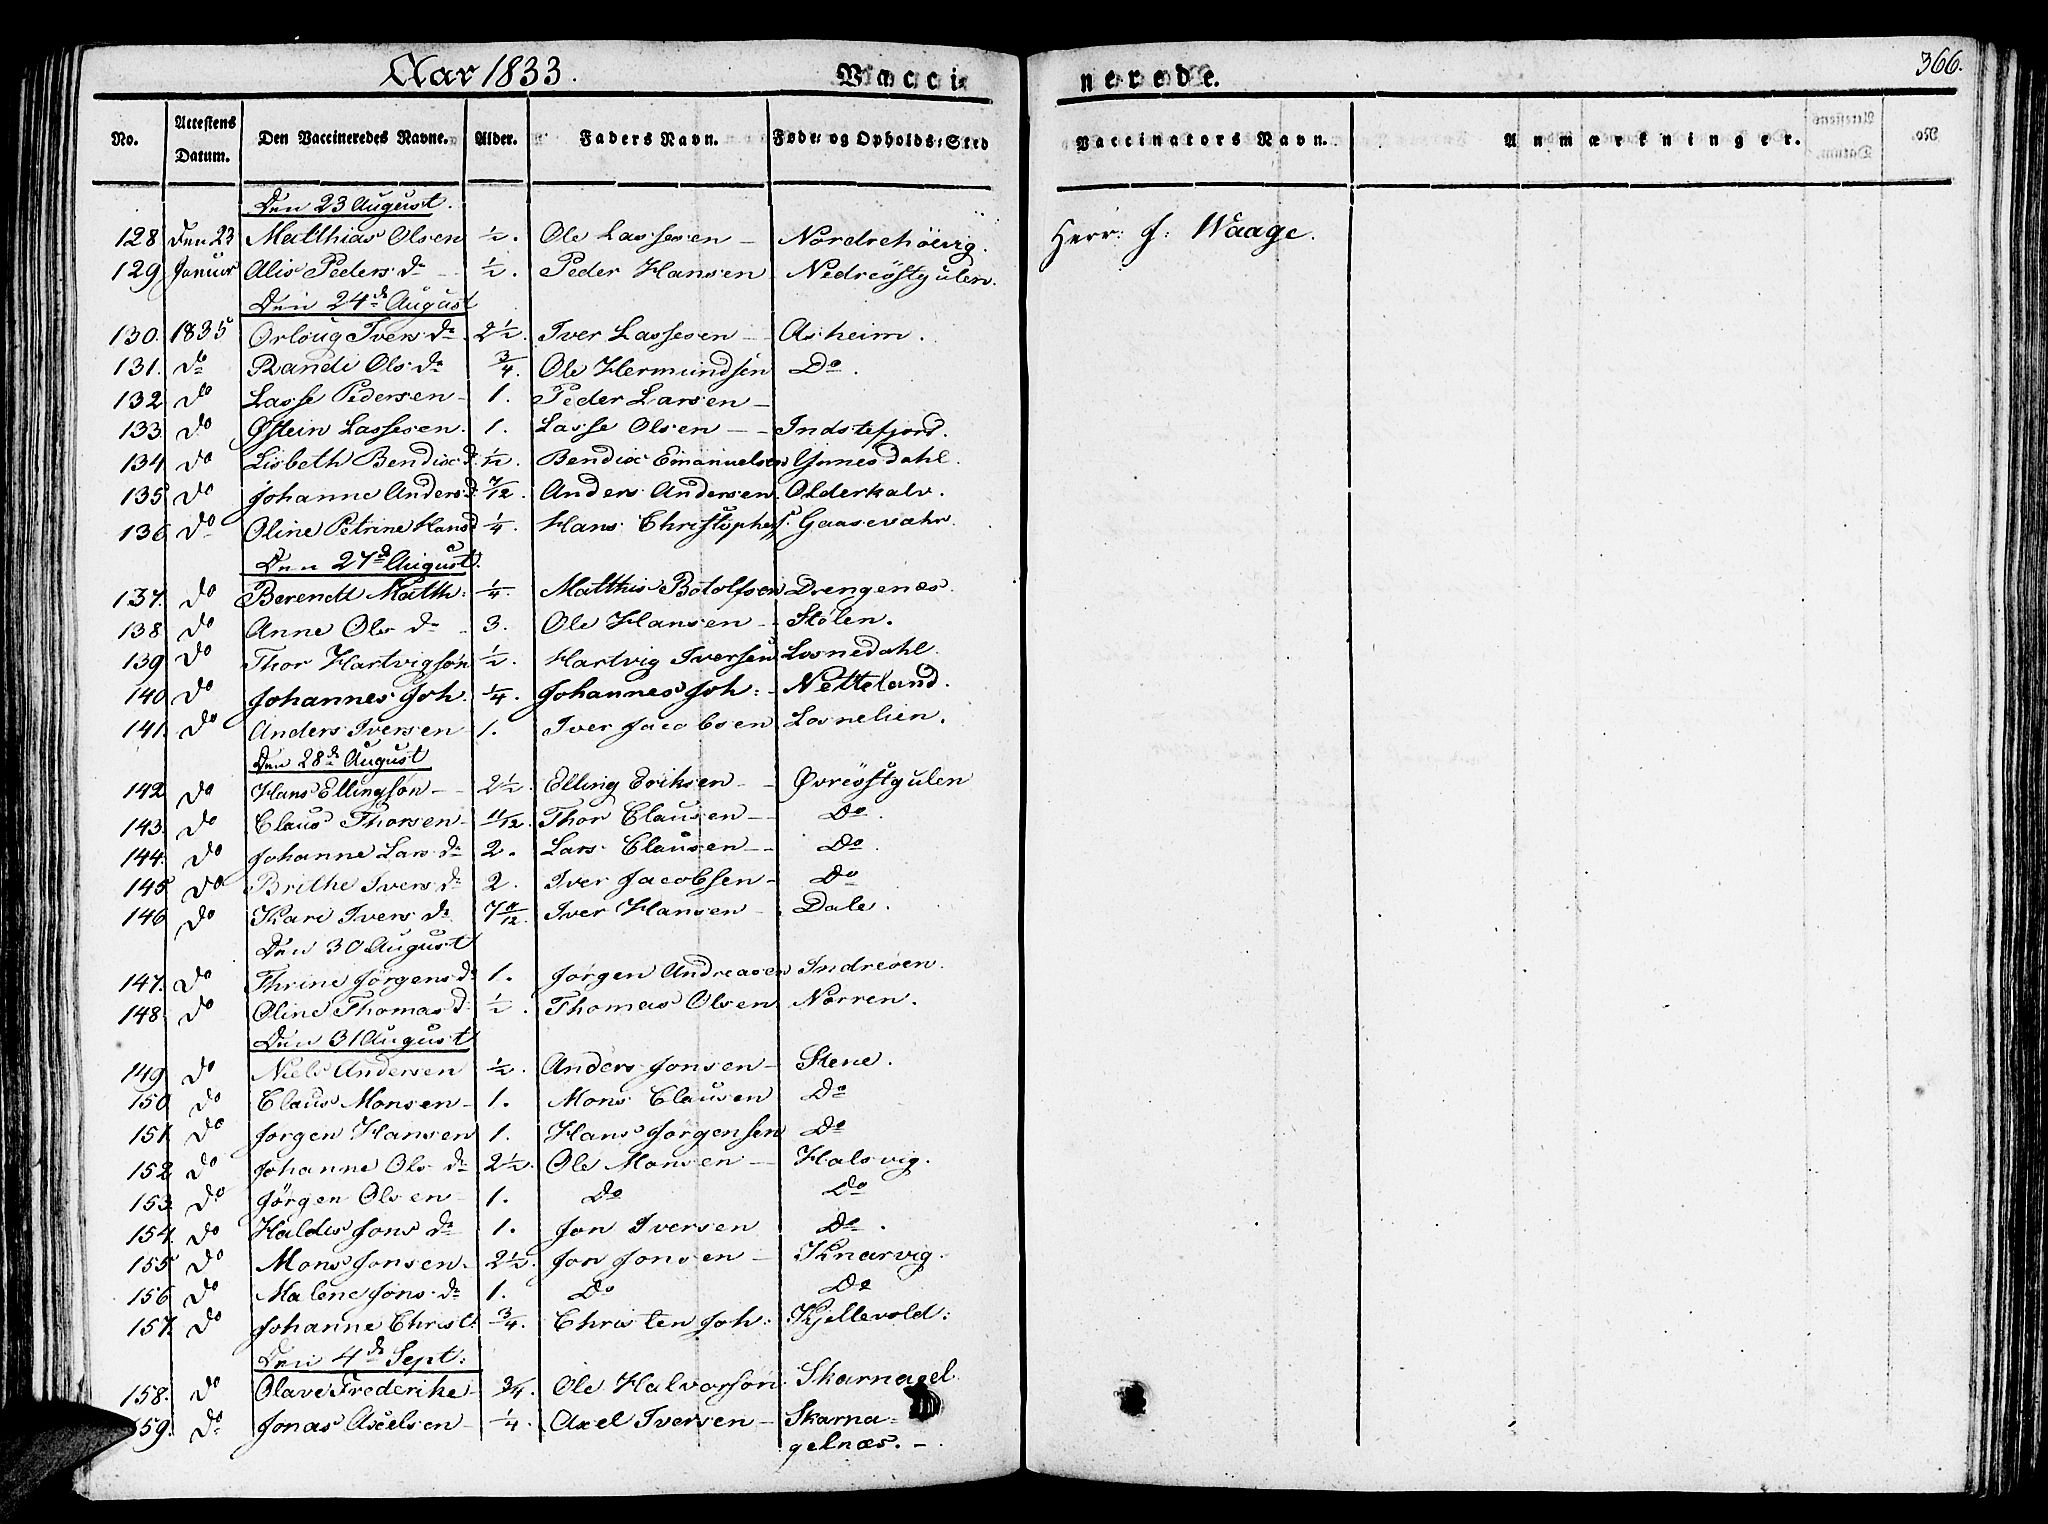 Aar 1833. Vacci nerede. 366.
No. Attestens Datum. Den Vaccineredes Navne. Alder. Faders Navn. Føde- og Opholds-Sted Vaccinators Navn. Anmærkninger.
Den 23 August.
128 Den 23 Matthias Olsen ½. Ole Lassesen – Nordrehöivig. Herr: J: Waage.
129 Januar Alis Peders dr ½. Peder Hansen Nedreöstgulen.
Den 24de August
130. 1835 Orloug Ivers dr 2½ Iver Lassesen – Asheim.
131. do Randi Ols dr ¾. Ole Hermundsen Do.
132 do Lasse Pedersen – 1. Peder Larsen –
133 do Østein Lassesen. 1. Lasse Olsen – – Indstefjord.
134 do Lisbeth Bendix d. ½. Bendix Emanuelsen Ynnesdahl.
135 do Johanne Anders d. 7/12. Anders Andersen. Olderkalv.
136 do Oline Petrine Hans d ¼. Hans Christophers. Gaasevahr.
Den 27de August.
137. do Berendt Matth: ¼. Matthis Botolfsen Drengenes.
138 do Anne Ols dr – 3. Ole Hansen – – Stølen.
139 do Thor Hartvigsøn ½. Hartvig Iversen Losnedahl.
140 do Johannes Joh. ¼. Johannes Joh: – Netteland.
141. do Anders Iversen 1. Iver Jacobsen Losnelien.
Den 28de August
142 do Hans Ellingsøn – – 2½. Elling Eriksen – – Øvreöstgulen
143. do Claus Thorsen – 11/12. Thor Clausen – – Do.
144. do Johanne Lars dr 2. Lars Clausen – – Do.
145 do Brithe Ivers dr 2. Iver Jacobsen – Do
146 do Kari Ivers dr 7 11/12 Iver Hansen – Dale.
Den 30 August
147. do Thrine Jörgens dr 1. Jørgen Andreasen Indreöen.
148. do Oline Thomas d. ½. Thomas Olsen Norren.
Den 31 August
149 do Niels Andersen ½. Anders Jonsen – Stene.
150 do Claus Monsen – 1. Mons Clausen Do
151 do Jørgen Hansen 1. Hans Jørgensen Do
152 do Johanne Ols dr 2½. Ole Monsen – Halsvig.
153. do Jörgen Olsen – 1. Do Do
154. do Haldis Jons dr 1. Jon Iversen Do.
155 do Mons Jonsen. 2½. Jon Jonsen – Knarvig.
156 do Malene Jons dr 1. Do Do
157. do Johanne Christ: ¾. Christen Joh: Kjellevold:
Den 4de Sept:
158. do Olave Frederike – ¾. Ole Halvorsøn. Skarnagel
159. do Jonas Axelsen – ¼. Axel Iversen – Skarna=
gelnæs. –.